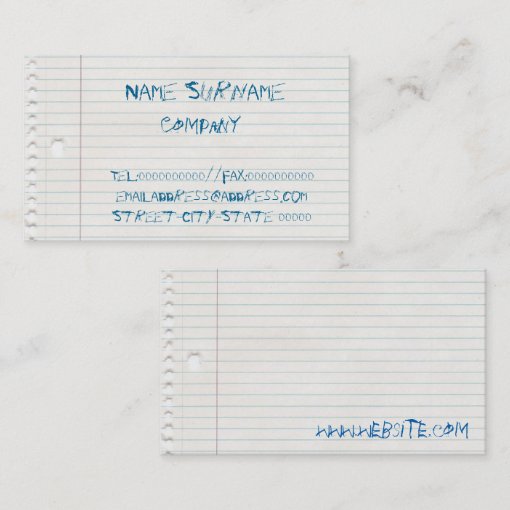 NAME SURNAME
COMPANY
TEL:0000000000//FAX:0000000000
EMAILADDRESS@ADDRESS.COM
STREET-CITY-STATE 00000
WWW.WEBSITE.COM